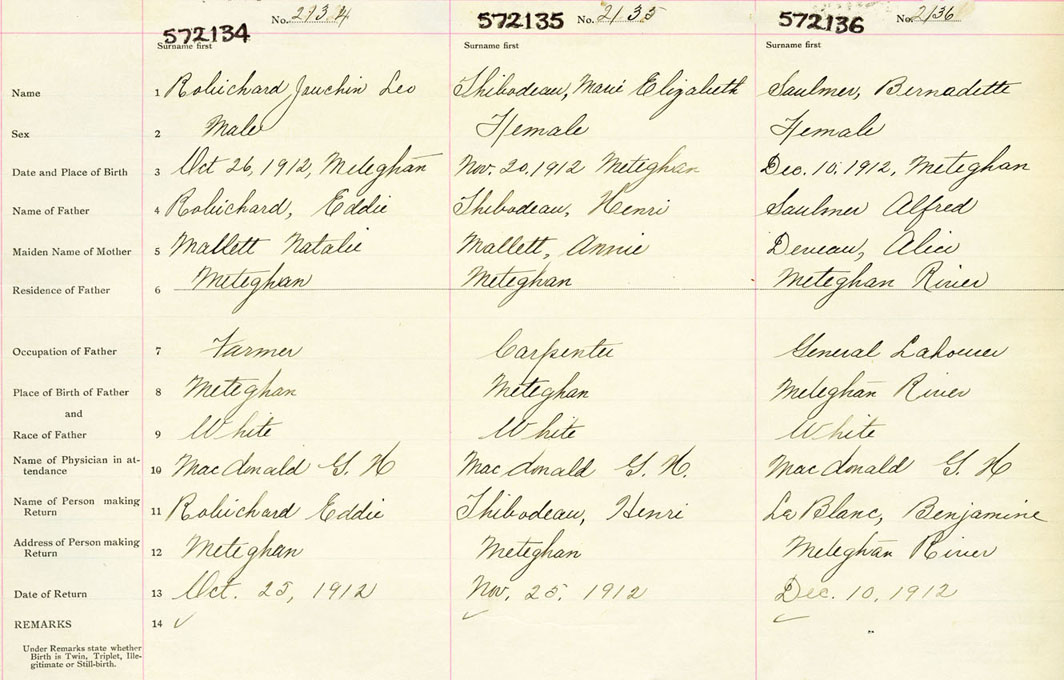 572134 No. 2134 572135 No. 2135 572136 No. 2136
Surname first Surname first Surname first
Name 1 Robichard Leo Thibodeau, Marie Elizabeth Saulmer, Bernadette
Sex 2 Male Female Female
Date and Place of Birth 3 Oct 26, 1912, Meteghan Nov. 20, 1912 Meteghan Dec. 10, 1912, Meteghan
Name of Father 4 Robichard, Eddie Thibodeau, Henri Saulmer Alfred
Maiden Name of Mother 5 Mallett Natalie Mallett, Annie Deveau, Alice
Residence of Father 6 Meteghan Meteghan Meteghan River
Occupation of Father 7 Farmer Carpenter General Labourer
Place of Birth of Father 8 Meteghan Meteghan Meteghan River
and
Race of Father 9 White White White
Name of Physician in at-
tendance 10 Macdonald G. H Macdonald G. H. Macdonald G. H
Name of Person making
Return 11 Robichard Eddie Thibodeau, Henri LeBlanc, Benjamine
Address of Person making
Return 12 Meteghan Meteghan Meteghan River
Date of Return 13 Oct. 25, 1912 Nov. 25, 1912 Dec. 10, 1912
REMARKS 14 ✓ ✓ ✓
Under Remarks state whether
Birth is Twin, Triplet, Ille-
gitimate or Still-birth.